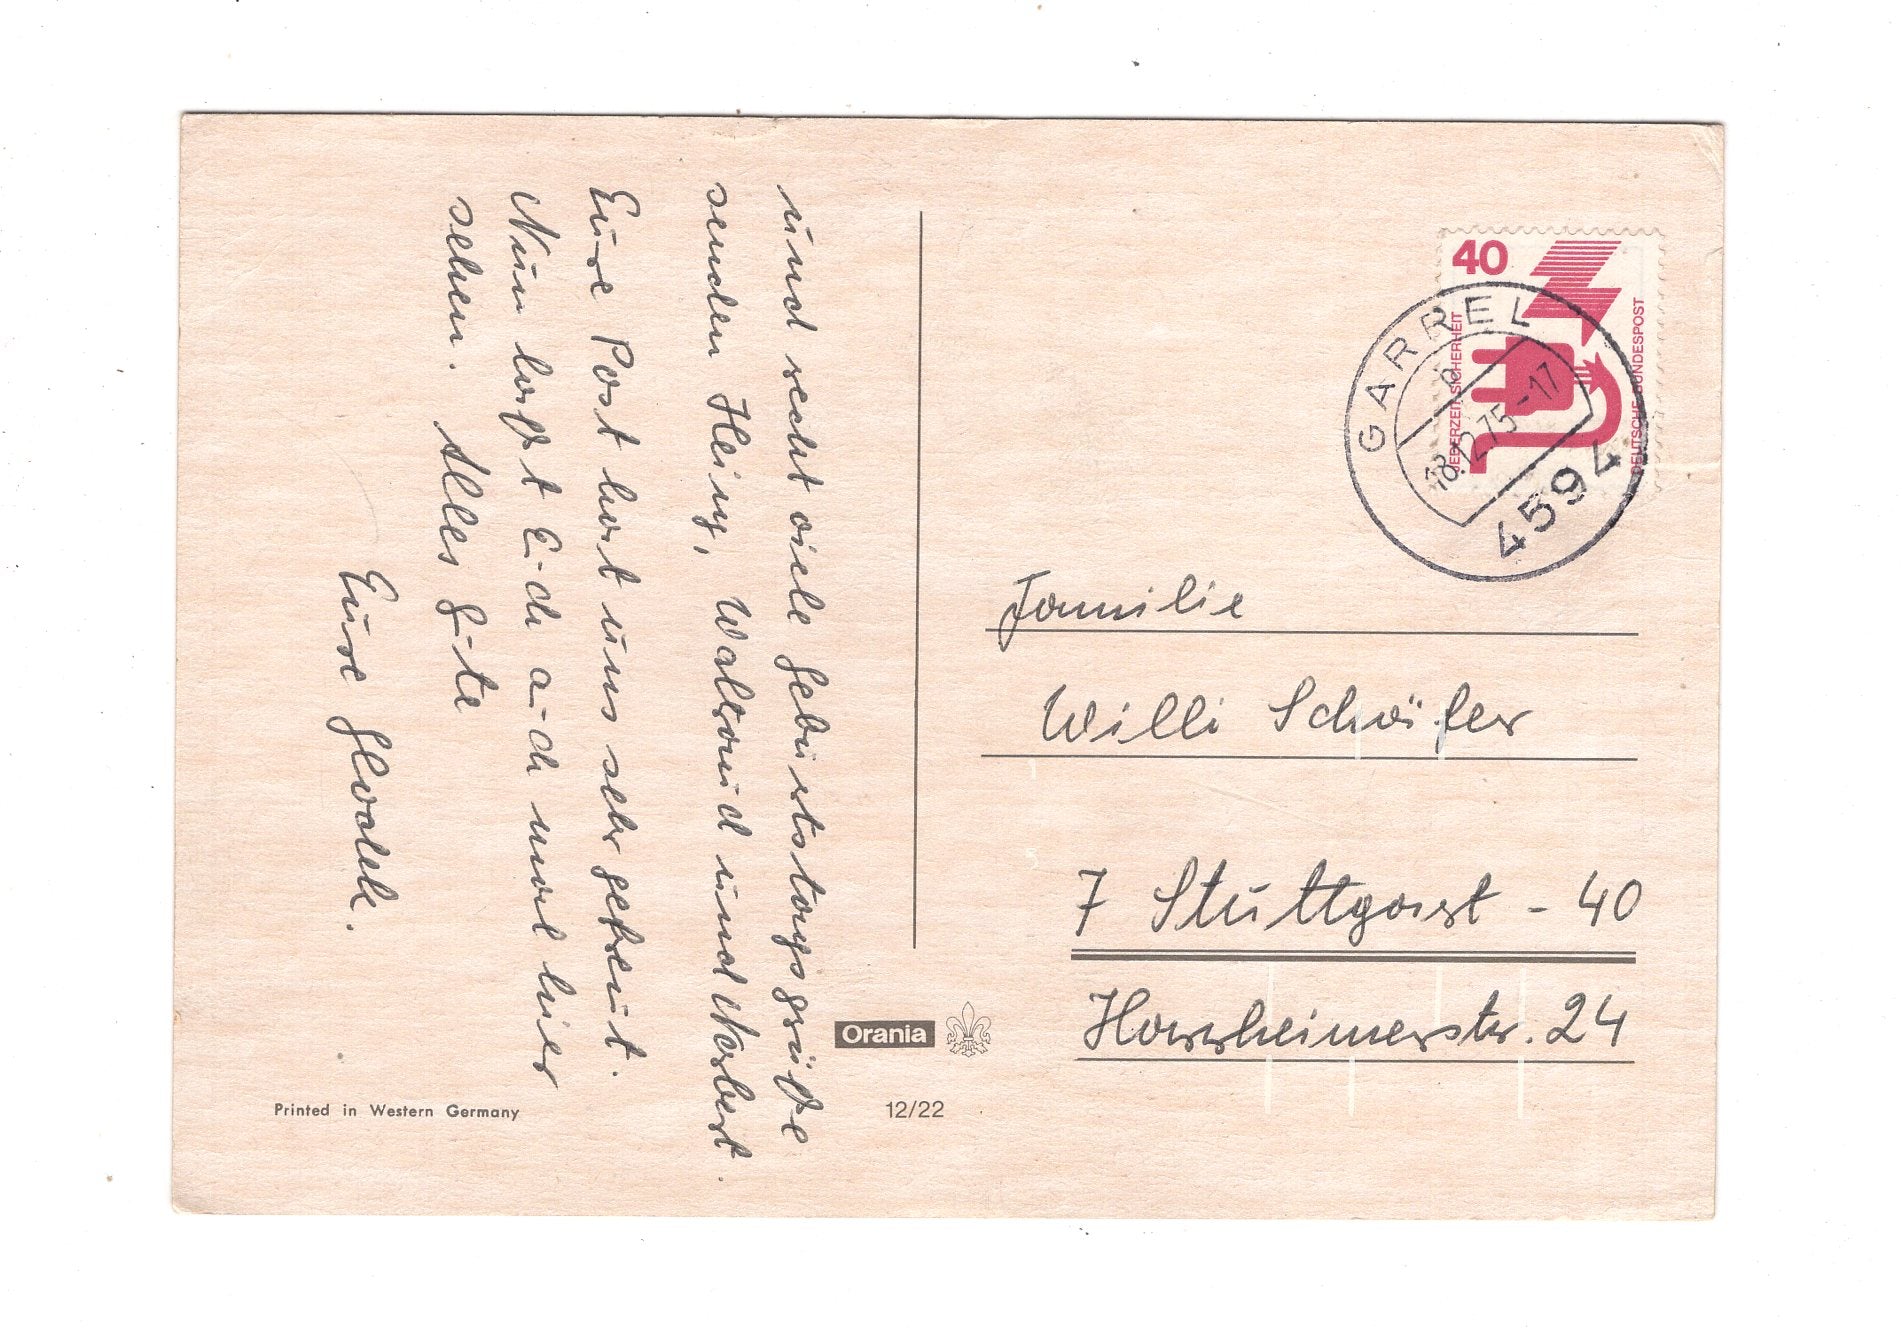 und recht viele Geburtstagsgrüße
senden Heiny, Waltraud und Norbert.
Eure Post hat uns sehr gefreut.
Nun laßt Euch auch mal hier
sehen. Alles Gute
Eure
40
JEDERZEIT SICHERHEIT
DEUTSCHE BUNDESPOST
GARREL
18.-2.75-17
4594
Familie
Willi Schäfer
7 Stuttgart - 40
24
Orania
Printed in Western Germany
12/22